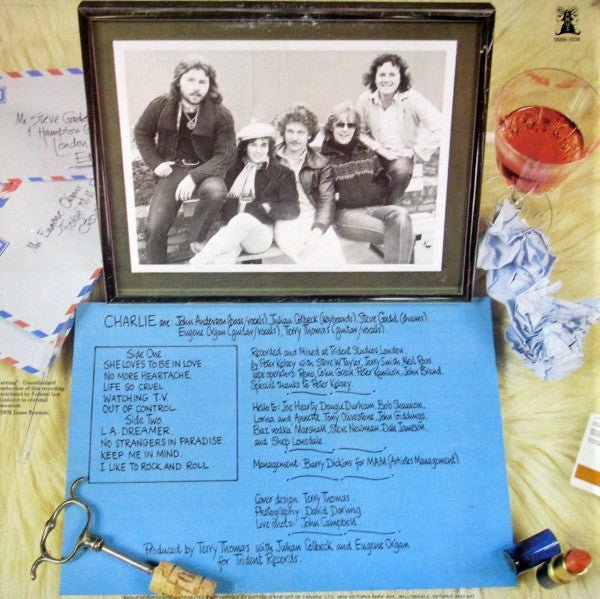 9098-7036
Mr Steve Gadd
1 Hampton
London
Mr Eugene Organ
CHARLIE are John Anderson (bass/vocals), Julian Colbeck (keyboards), Steve Gadd (drums).
Eugene Organ (guitar/vocals), Terry Thomas (guitar/vocals).
Side One.
SHE LOVES TO BE IN LOVE
NO MORE HEARTACHE.
LIFE SO CRUEL.
WATCHING T.V.
OUT OF CONTROL.
Side Two.
L.A. DREAMER.
NO STRANGERS IN PARADISE
KEEP ME IN MIND.
I LIKE TO ROCK AND ROLL.
Recorded and Mixed at Trident Studios London.
by Peter Kelsey with Steve W Tayler, Jerry Smith, Neil Ross.
Tape operators: Reno, Colin Green, Peter Kamlish, John Brand.
Special thanks to Peter Kelsey.
Hello to: Joe Hearty, Dougie Durham, Bob Shannon,
Lorna and Annette, Tony Ouvestone, John Eddings,
Baz Vodka Marshall, Steve Newman, Dale Jameson,
and Shep Lonsdale.
Management: Barry Dickins for MAM (Artistes Management).
Cover design: Terry Thomas.
Photography: David Darling
Live shots: John Campbell.
Produced by Terry Thomas with Julian Colbeck and Eugene Organ
for Trident Records.
1978 Janus Records,